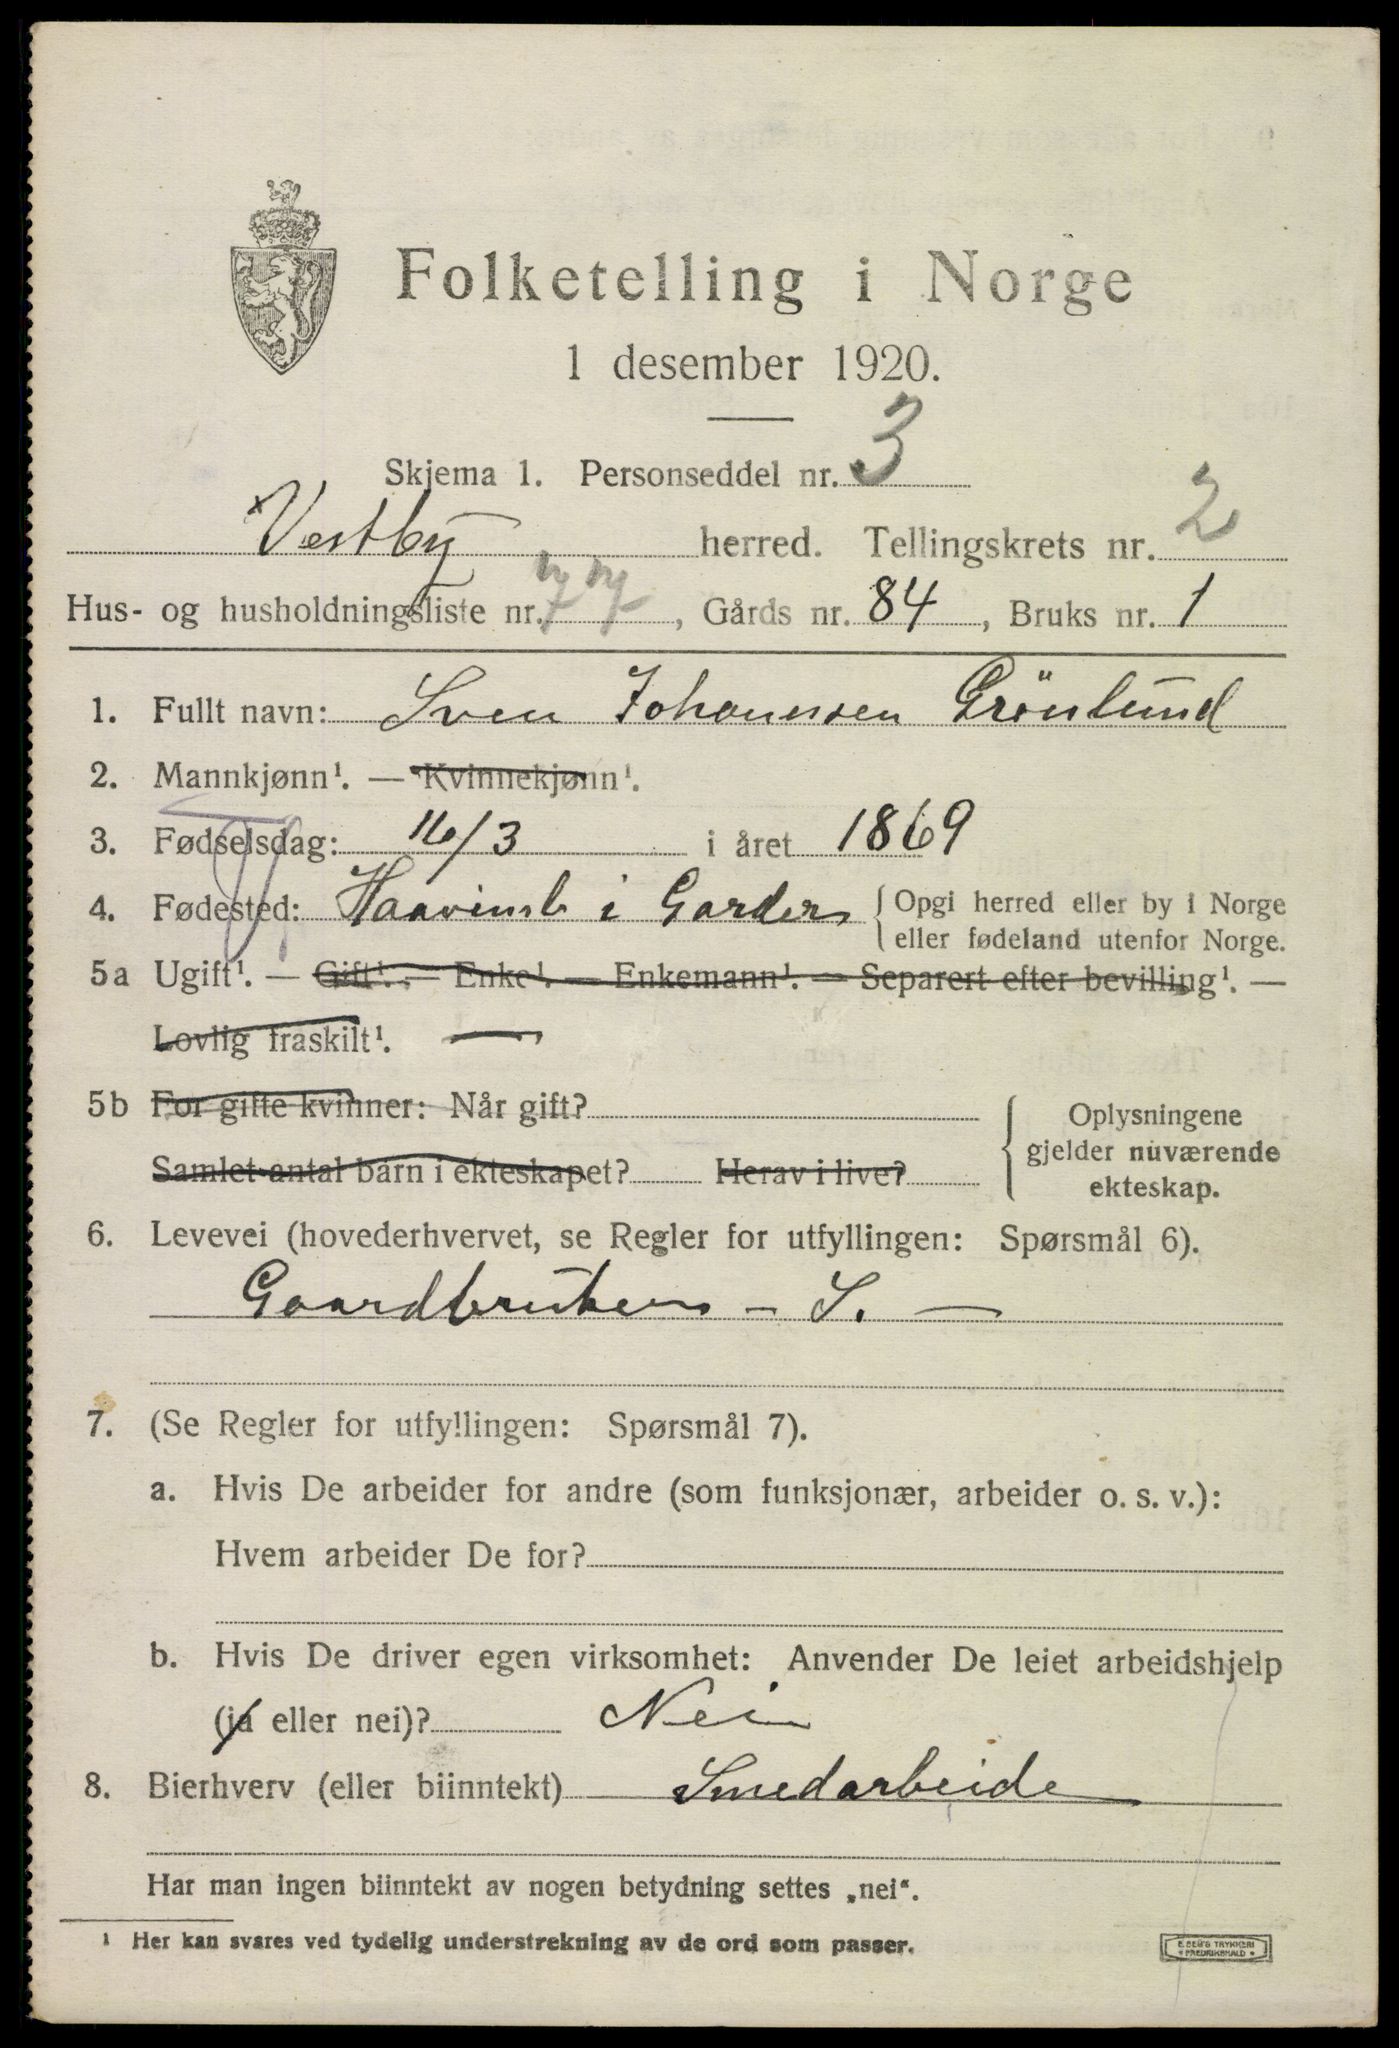 Folketelling i Norge
1 desember 1920.
Skjema 1. Personseddel nr. 3
Vestby herred. Tellingskrets nr. 2
Hus- og husholdningsliste nr. 77, Gårds nr. 84, Bruks nr. 1
1. Fullt navn: Sven Johannesen Grönlund
2. Mannkjønn¹. — Kvinnekjønn¹.
3. Fødselsdag: 16/3 i året 1869
4. Fødested: i Garder { Opgi herred eller by i Norge
eller fødeland utenfor Norge.
5a Ugift¹. — Gift¹. — Enke¹. — Enkemann¹. — Separert efter bevilling¹. —
Lovlig fraskilt¹. —
5b For gifte kvinner: Når gift?
Samlet antal barn i ekteskapet? Herav i live?
{ Oplysningene
gjelder nuværende
ekteskap.
6. Levevei (hovederhvervet, se Regler for utfyllingen: Spørsmål 6).
Gaardbruker - S. —
7. (Se Regler for utfyllingen: Spørsmål 7).
a. Hvis De arbeider for andre (som funksjonær, arbeider o. s. v.):
Hvem arbeider De for?
b. Hvis De driver egen virksomhet: Anvender De leiet arbeidshjelp
(ja eller nei)? Nei
8. Bierhverv (eller biinntekt) Smedarbeide
Har man ingen biinntekt av nogen betydning settes „nei“.
¹ Her kan svares ved tydelig understrekning av de ord som passer.
E. SEM'S TRYKKERI
FREDRIKSHALD